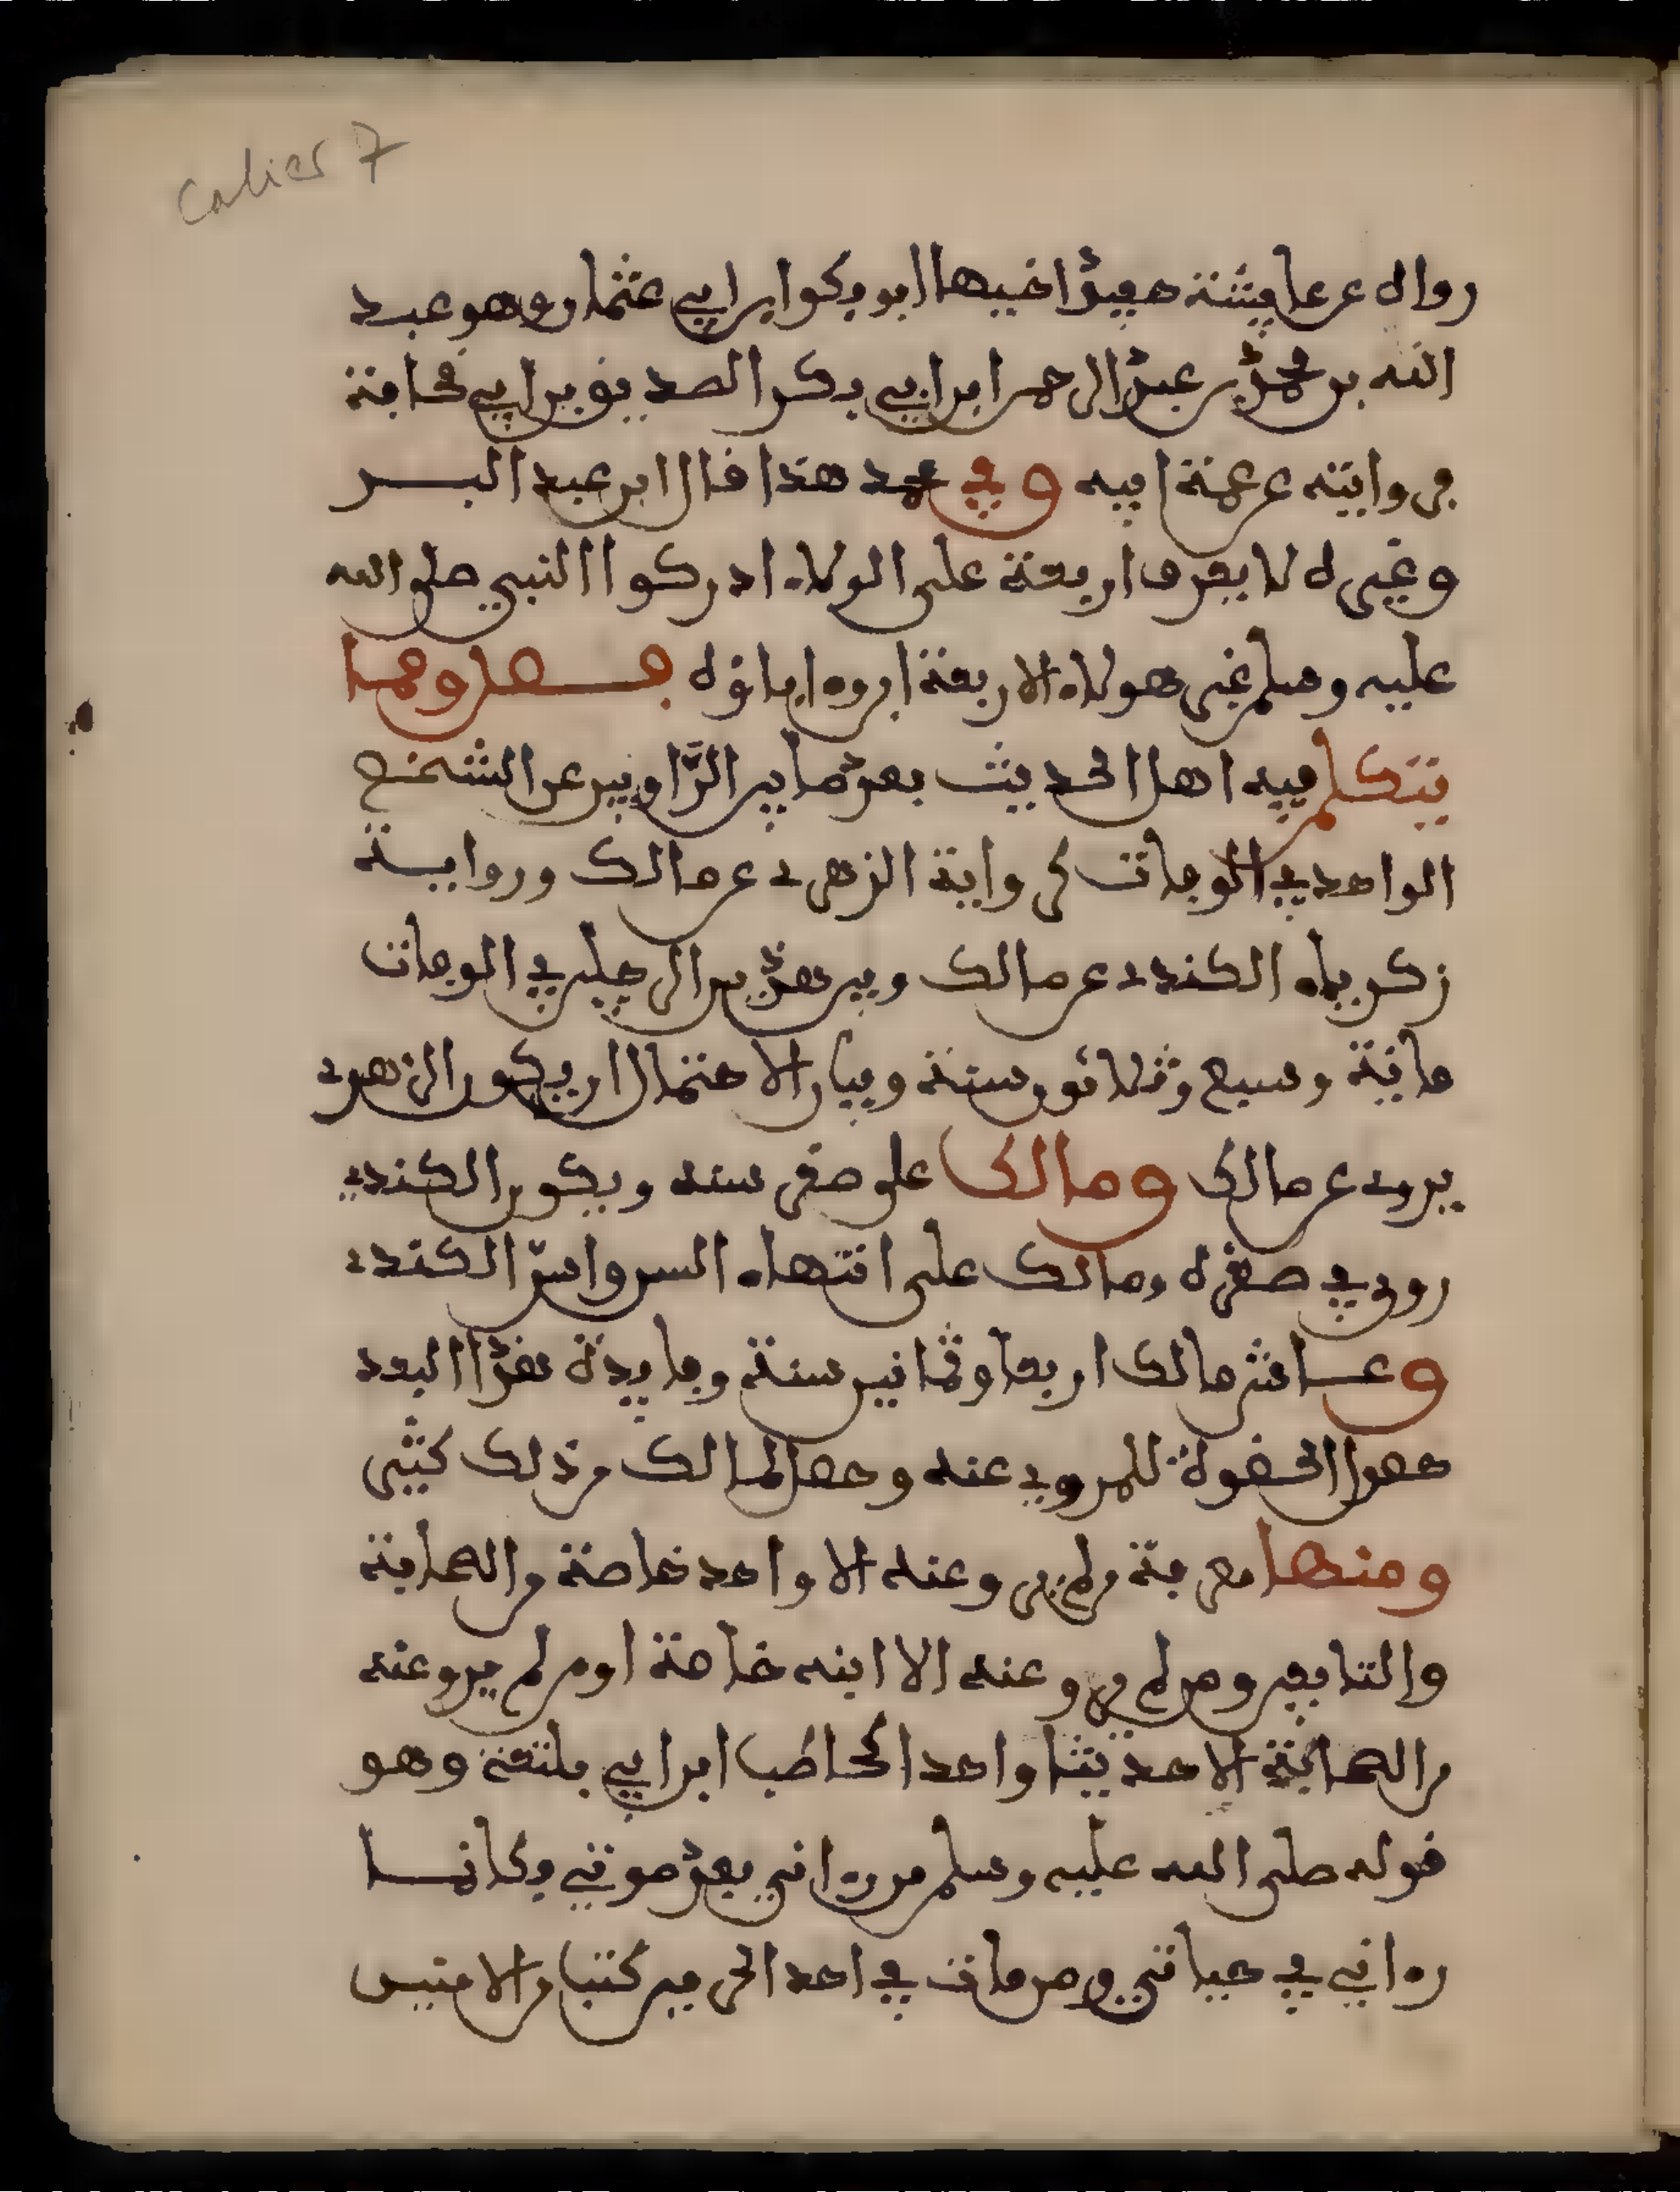 Cahier 7
رواه عن عايشة حفيد اخيها ابو بكر ابن ابي عثمان وهو عبد
الله بن محمد بن عبد الرحمن ابن ابي بكر الصديق بن ابي قحافة
في روايته عن عمة ابيه وفي محمد هذا قال ابن عبد البر
وغيره لا يعرف اربعة على الولاء ادركوا النبي صلى الله
عليه وسلم غير هولاء الاربعة
يتكلم فيه اهل الحديث بعد ما بين الراويين عن الشخص
الواحد في الوفات كرواية الزهري عن مالك ورواية
زكرياء الكندي عن مالك وبين هذين الرجلين في الوفات
ماية وسبع وثلاثون سنة وبيان الاحتمال ان يكون الزهري
يروي عن مالك ومالك على صغر سنه ويكون الكندي
روى في صغره ومالك على انتهاء السن واسن الكندي
وعاش مالك اربعا وثمانين سنة وفايدة هذا البعد
حصول الحضوة للمروي عنه وحصل لمالك من ذلك كثير
ومنها معرفة من لم يرو عنه الا واحد خاصة من الصحابة
والتابعين ومن لم يرو عنه الا ابنه خاصة او من لم يرو عنه
من الصحابة الا حديثا واحدا كحاطب ابن ابي بلتعة وهو
قوله صلى الله عليه وسلم من رءاني بعد موتي فكانما
رءاني في حياتي ومن مات في احد الحرمين كتب من الامنين